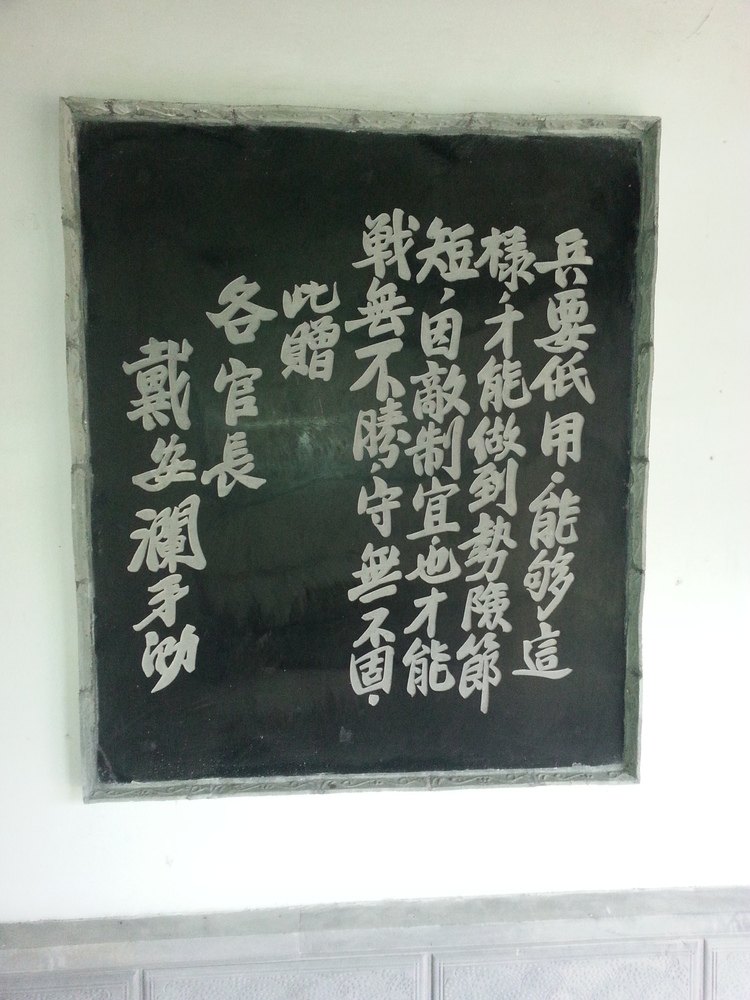 兵要低用，能够，這
樣，才能做到勢險節
短，因敵制宜也才能
戦無不勝，守無不固．
此贈
各官長
戴安瀾手泐